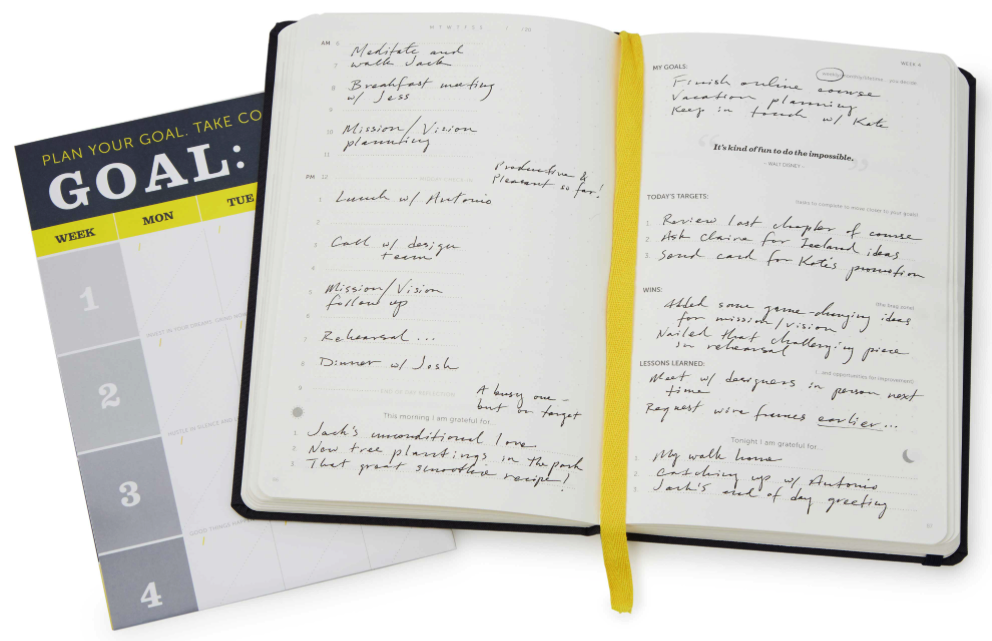 PLAN YOUR GOAL. TAKE CO
GOAL:
WEEK MON TUE
1
2
3
4
AM 6
Meditate and
7 walk Jack
8 Breakfast meeting
w/ Jess
10 Mission/Vision
planning
11
Productive &
Pleasant so far!
PM 12
1 Lunch w/ Antonio
2
3 Call w/ design
team
4
5 Mission/Vision
follow up
6
7 Rehearsal ...
8 Dinner w/ Josh
9
A busy one -
but on target
END OF DAY REFLECTION
This morning I am grateful for...
1. Jack's unconditional love
2. New tree plantings in the park
3. That great smoothie recipe!
WEEK 4
MY GOALS:
weekly/monthly/lifetime... you decide
Finish online course
Vacation planning
Keep in touch w/ Kate
It's kind of fun to do the impossible.
- WALT DISNEY -
TODAY'S TARGETS:
(tasks to complete to move closer to your goals)
1. Review last chapter of course
2. Ask Claire for Iceland ideas
3. Send card for Kate's promotion
WINS:
(the brag zone)
Added some game-changing ideas
for mission/vision
Nailed that challenging piece
in rehearsal
LESSONS LEARNED:
(...and opportunities for improvement)
Meet w/ designers in person next
time
Request wire frames earlier...
Tonight I am grateful for...
1. My walk home
2. Catching up w/ Antonio
3. Jack's end of day greeting